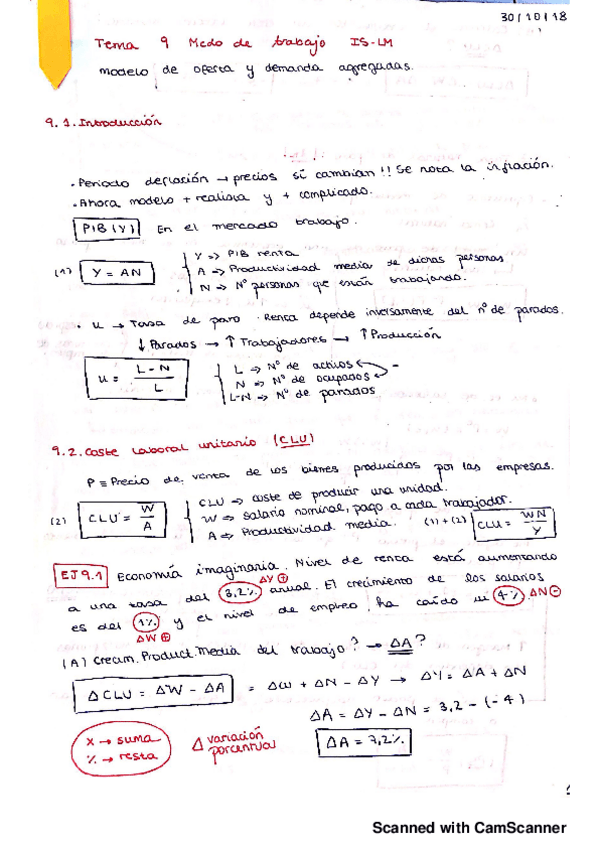 30/10/18
Tema 9 Mcdo de trabajo IS-LM
modelo de oferta y demanda agregadas.
9.1. Introducción
· Periodo deflación → precios sí cambian!! Se nota la inflación.
· Ahora modelo + realista y + complicado.
PIB (Y) En el mercado trabajo.
(1) Y = AN
Y => PIB renta
A => Productividad media de dichas personas
N => Nº personas que están trabajando.
· u → Tasa de paro · Renta depende inversamente del nº de parados.
↓ Parados → ↑ Trabajadores → ↑ Producción
u = L - N / L
L => Nº de activos
N => Nº de ocupados
L-N => Nº de parados
-
9.2. Coste laboral unitario (CLU)
P ≡ Precio de venta de los bienes producidos por las empresas.
(2) CLU = W / A
CLU => coste de producir una unidad.
W => salario nominal, pago a cada trabajador.
A => Productividad media.
(1)+(2) CLU = WN / Y
EJ 9.1 Economía imaginaria. Nivel de renta está aumentando
ΔY ⊕
a una tasa del 3,2% anual. El crecimiento de los salarios
es del 1% y el nivel de empleo ha caído un 4% ΔN ⊖
ΔW ⊕
(A) Crecim. Product. Media del trabajo? → ΔA?
Δ CLU = ΔW - ΔA = Δw + ΔN - ΔY → ΔY = ΔA + ΔN
ΔA = ΔY - ΔN = 3,2 - (-4)
x → suma
% → resta
Δ variación
porcentual
ΔA = 7,2%
1
Scanned with CamScanner